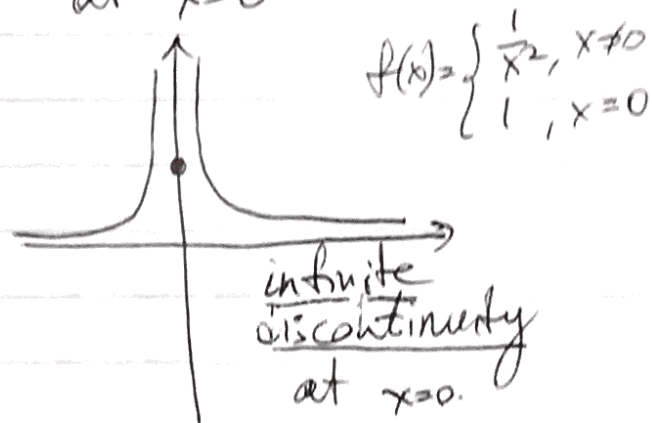 at x=0
f(x)= { 1/x², x≠0
1 , x=0
infinite
discontinuity
at x=0.